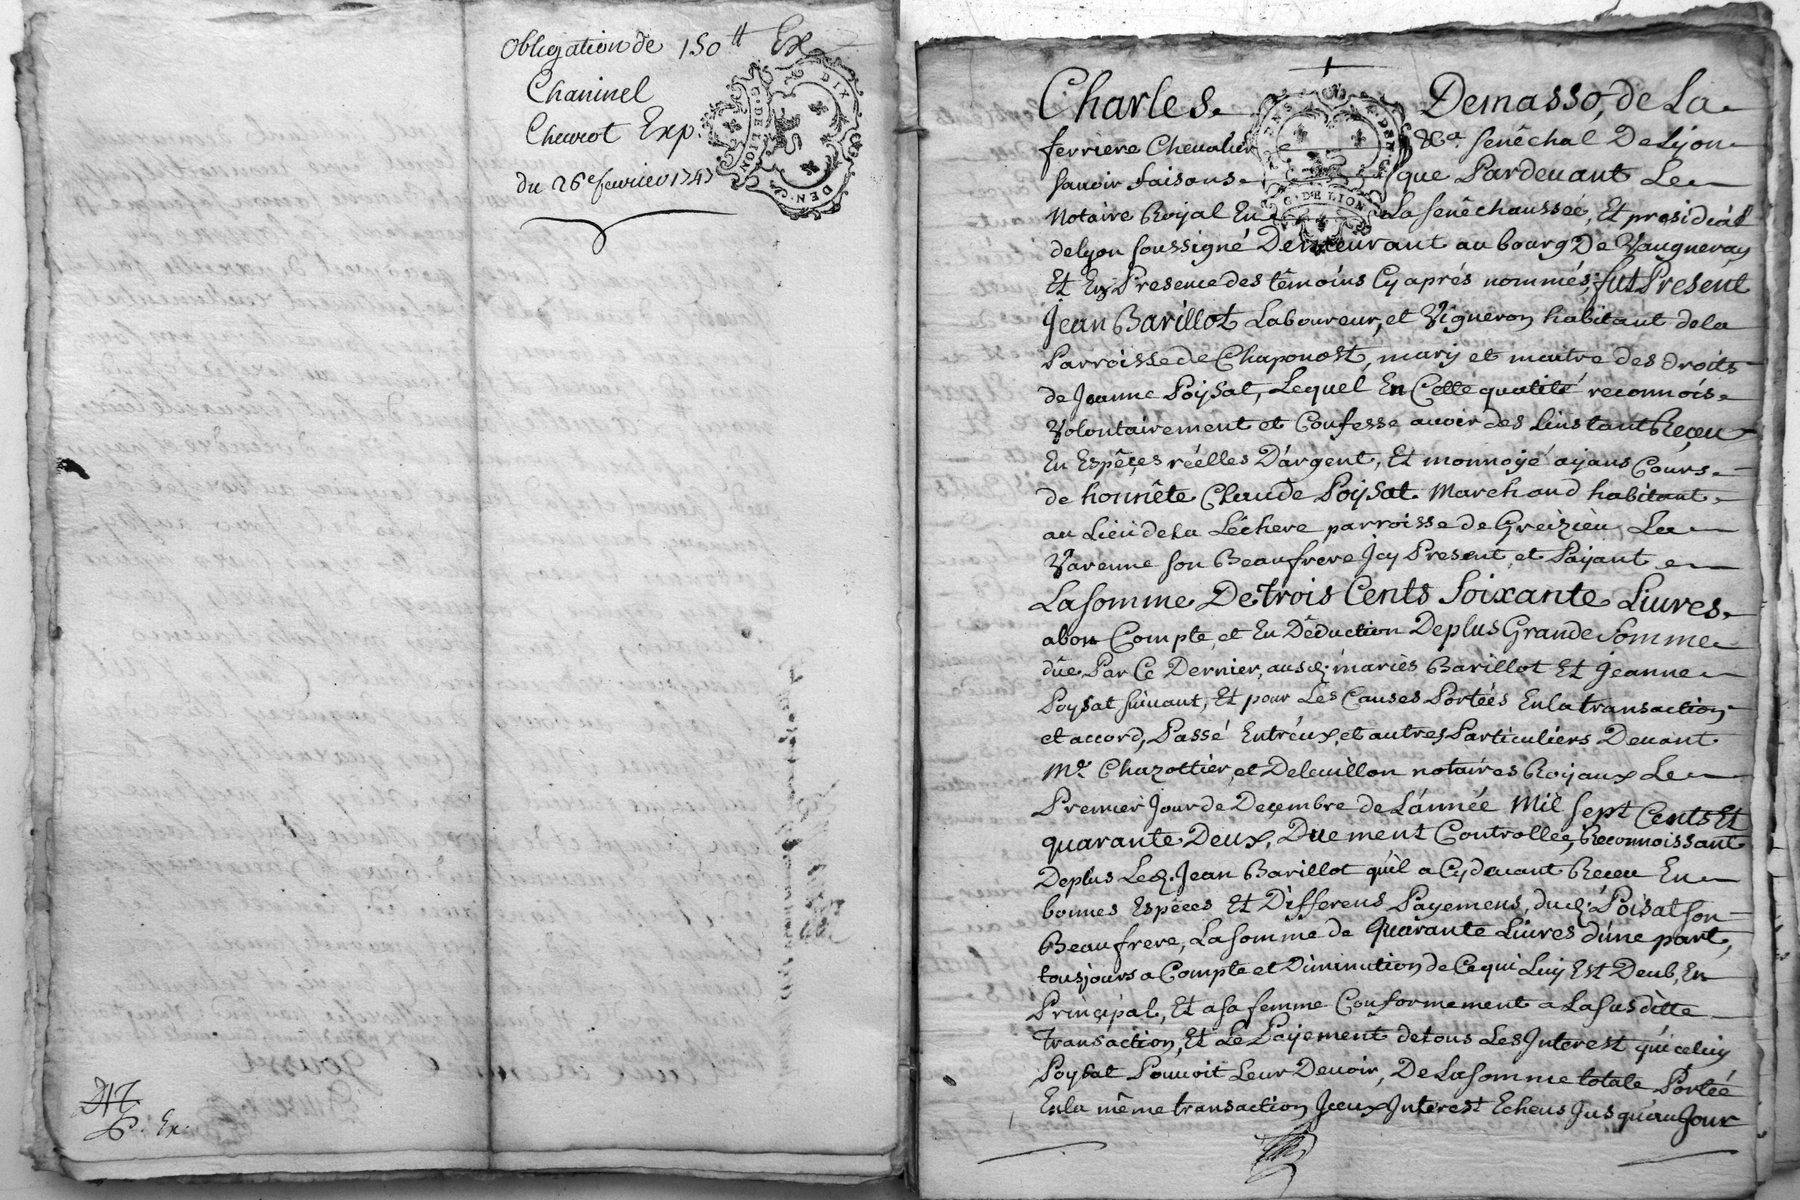 Obligation de 150 ₶ Ex
Chaninel
Chevrot Exp.
du 26e fevrier 1747
DIX DEN.
G. DE LION
Charles Demasso, de La
ferriere Chevalier &a. senêchal De Lyon
savoir faisons que Pardevant Le
Notaire Royal En La senêchaussée, Et presidial
de Lyon soussigné Demeurant au bourg De Vaugneray
Et En Presence des têmoins Cy aprés nommés, fut Present
Jean Barillot Laboureur, et Vigneron habitant de la
Parroisse de Chaponost, mary et maitre des droits
de Jeanne Poysat, Lequel En Cette qualité reconnois
Volontairement et Confesse avoir des Linstant Reçeu
En Espêçes réelles D'argent, Et monnoyé ayans Cours
de honnête Claude Poysat Marchand habitant
au Lieu de La Lêchere parroisse de Greizieu La
Varenne son Beaufrere Jcy Present, et Payant
La Somme De trois Cents Soixante Livres
a bon Compte, et En Dêduction De plus Grande Somme
düe Par Ce Dernier, ausd. mariés Barillot Et Jeanne
Poysat suivant, Et pour Les Causes Portées En la transaction
et accord, Passé Entréux, et autres Particuliers Devant
Me. Chazottier, et Deleullion notaires Royaux Le
Premier Jour de Deçembre de L'année Mil sept Cents Et
quarante Deux, Duement Controllée, Reconnoissant
De plus Led. Jean Barillot qu'il a Cy devant Reçeu En
bonnes Espéces Et Differens Payemens, dud. Poisat son
Beaufrere, La somme de Quarante Livres d'une part,
tousjours a Compte et Diminution de Ce qui Luy Est Deub, En
Prinçipal, Et a sa femme Conformement a La susditte
Transaction, Et Le Payement de tous Les Interest qu'iceluy
Poysat Pouvoit Leur Devoir, De La somme totale Portée
En la même transaction Jceux Interest Echeus Jusqu'au Jour
G. DE LION
Ex.